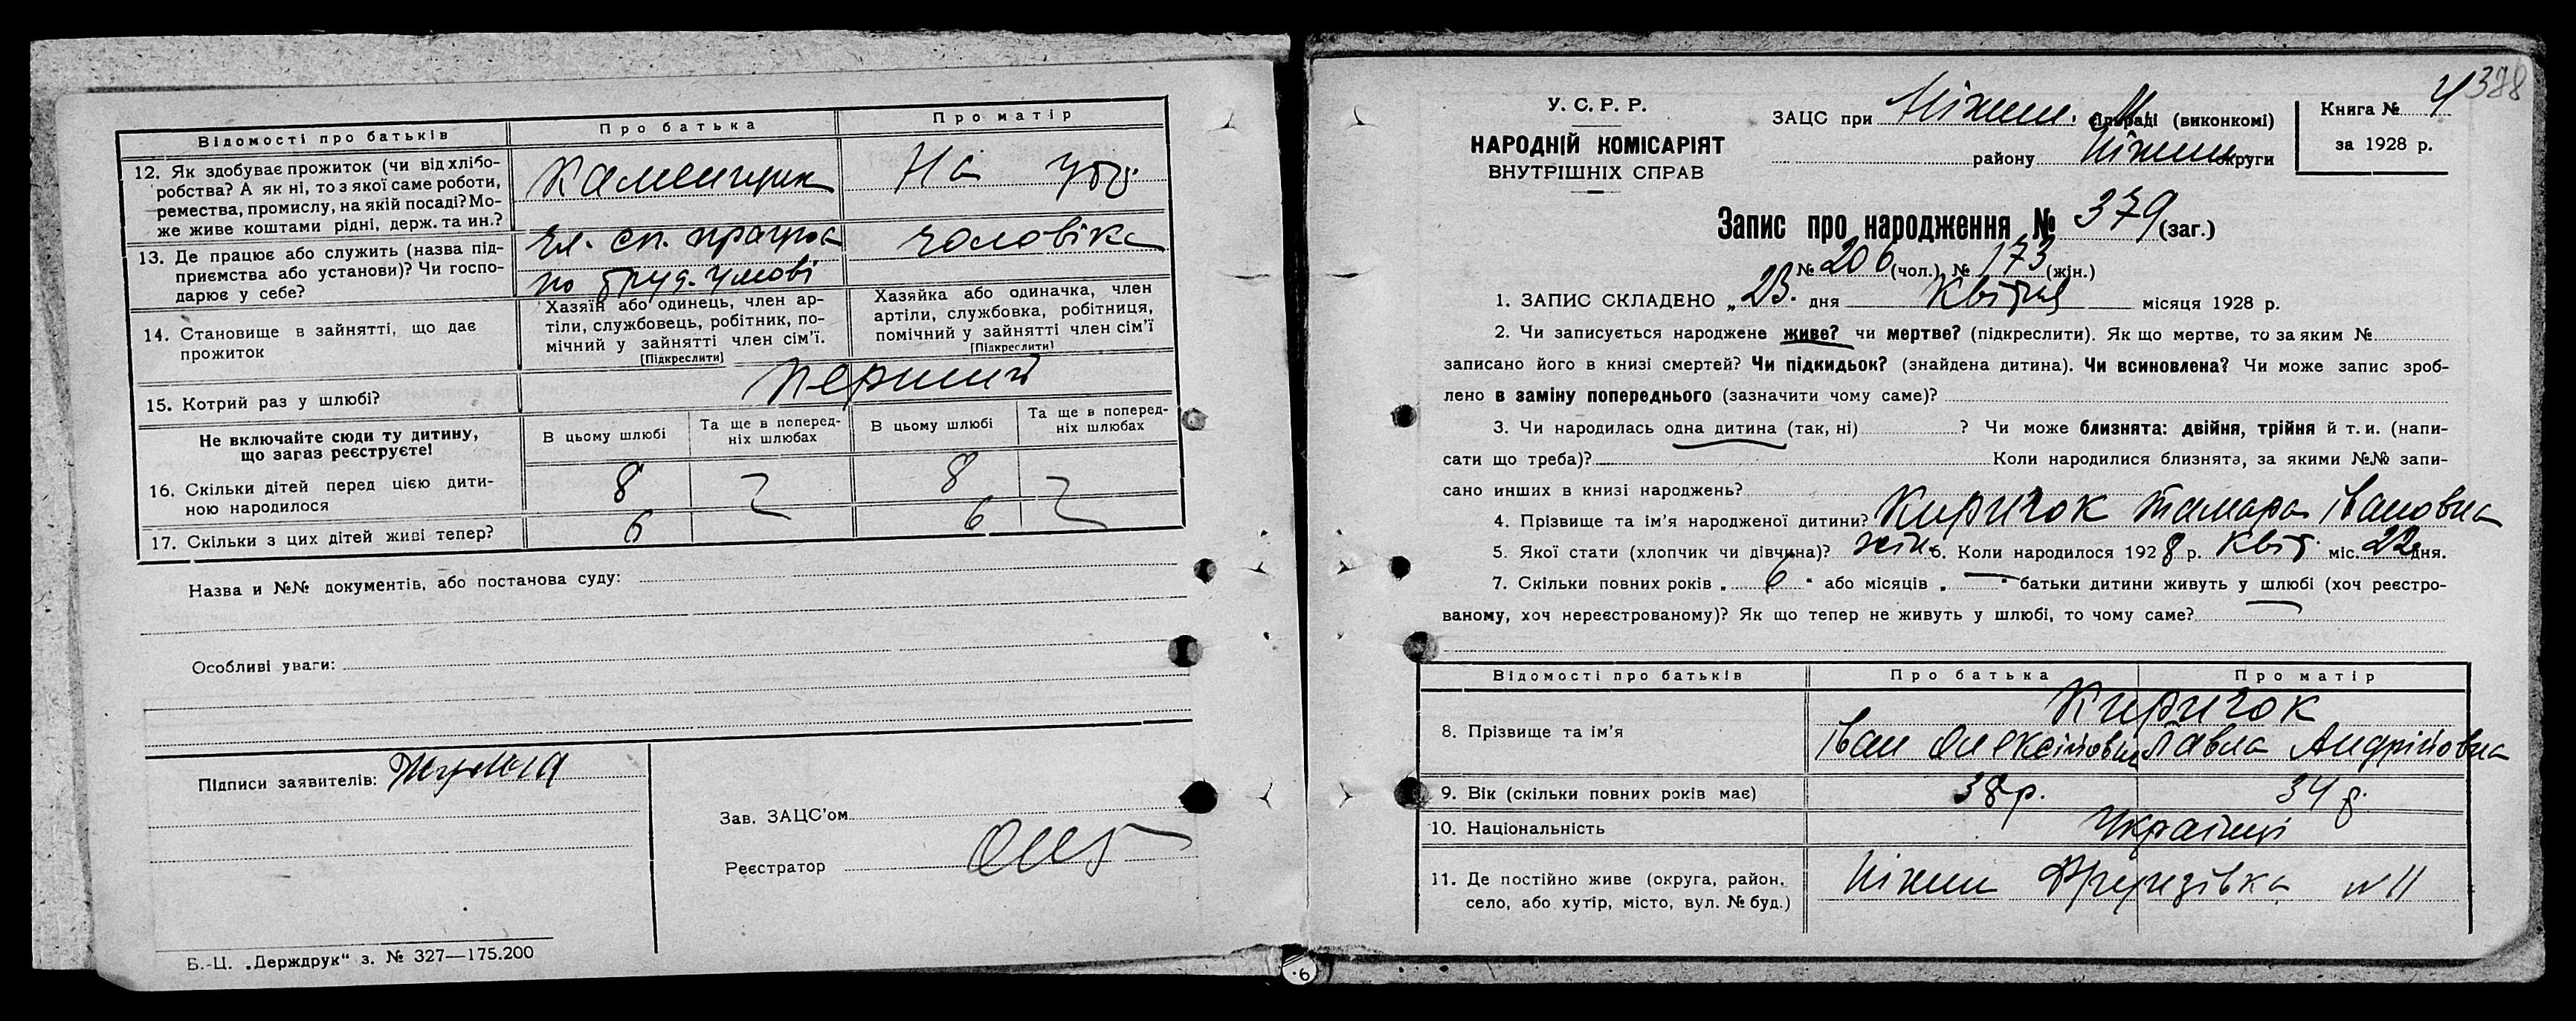 Відомості про батьків
Про батька
Про матір
12. Як здобуває прожиток (чи від хлібо-
робства? А як ні, то з якої саме роботи,
ремества, промислу, на якій посаді? Мо-
же живе коштами рідні, держ. та ин.?
Каменщик
На утр.
13. Де працює або служить (назва під-
приємства або установи)? Чи госпо-
дарює у себе?
Чл. сп. працює
по труд. умові
чоловіка
14. Становище в зайнятті, що дає
прожиток
Хазяїн або одинець, член ар-
тіли, службовець, робітник, по-
мічний у зайнятті член сім'ї.
[Підкреслити]
Хазяйка або одиначка, член
артіли, службовка, робітниця,
помічний у зайнятті член сім'ї
[Підкреслити]
15. Котрий раз у шлюбі?
перший
Не включайте сюди ту дитину,
що загаз реєструєте!
В цьому шлюбі
Та ще в поперед-
ніх шлюбах
В цьому шлюбі
Та ще в поперед-
ніх шлюбах
16. Скільки дітей перед цією дити-
ною народилося
8
8
17. Скільки з цих дітей живі тепер?
6
6
Назва и №№ документів, або постанова суду:
Особливі уваги:
Підписи заявителів:
Зав. ЗАЦС'ом
Реєстратор
Б.-Ц. „Держдрук" з. № 327—175.200
6
388
У. С. Р. Р.
НАРОДНІЙ КОМІСАРІЯТ
ВНУТРІШНІХ СПРАВ
ЗАЦС при Ніжин. М. (виконкомі)
району Ніжин округи
Книга № 4
за 1928 р.
Запис про народження № 379 (заг.)
№ 206 (чол.) № 173 (жін.)
1. ЗАПИС СКЛАДЕНО „23. дня Квітня місяця 1928 р.
2. Чи записується народжене живе? чи мертве? (підкреслити). Як що мертве, то за яким №
записано його в книзі смертей? Чи підкидьок? (знайдена дитина). Чи всиновлена? Чи може запис зроб-
лено в заміну попереднього (зазначити чому саме)?
3. Чи народилась одна дитина (так, ні) ? Чи може близнята: двійня, трійня й т. и. (напи-
сати що треба)? Коли народилися близнята, за якими №№ запи-
сано инших в книзі народжень?
4. Прізвище та ім'я народженої дитини? Киричок Тамара Івановна
5. Якої стати (хлопчик чи дівчина)? жін. 6. Коли народилося 1928 р. квіт. міс. 22 дня.
7. Скільки повних років „ 6 " або місяців „ — " батьки дитини живуть у шлюбі (хоч реєстро-
ваному, хоч нереєстрованому)? Як що тепер не живуть у шлюбі, то чому саме?
Відомості про батьків
Про батька
Про матір
8. Прізвище та ім'я
Киричок
Іван Олексійович
Павла Андрійовна
9. Вік (скільки повних років має)
38 р.
34 р.
10. Національність
Українці
11. Де постійно живе (округа, район,
село, або хутір, місто, вул. № буд.)
Ніжин
№ 11